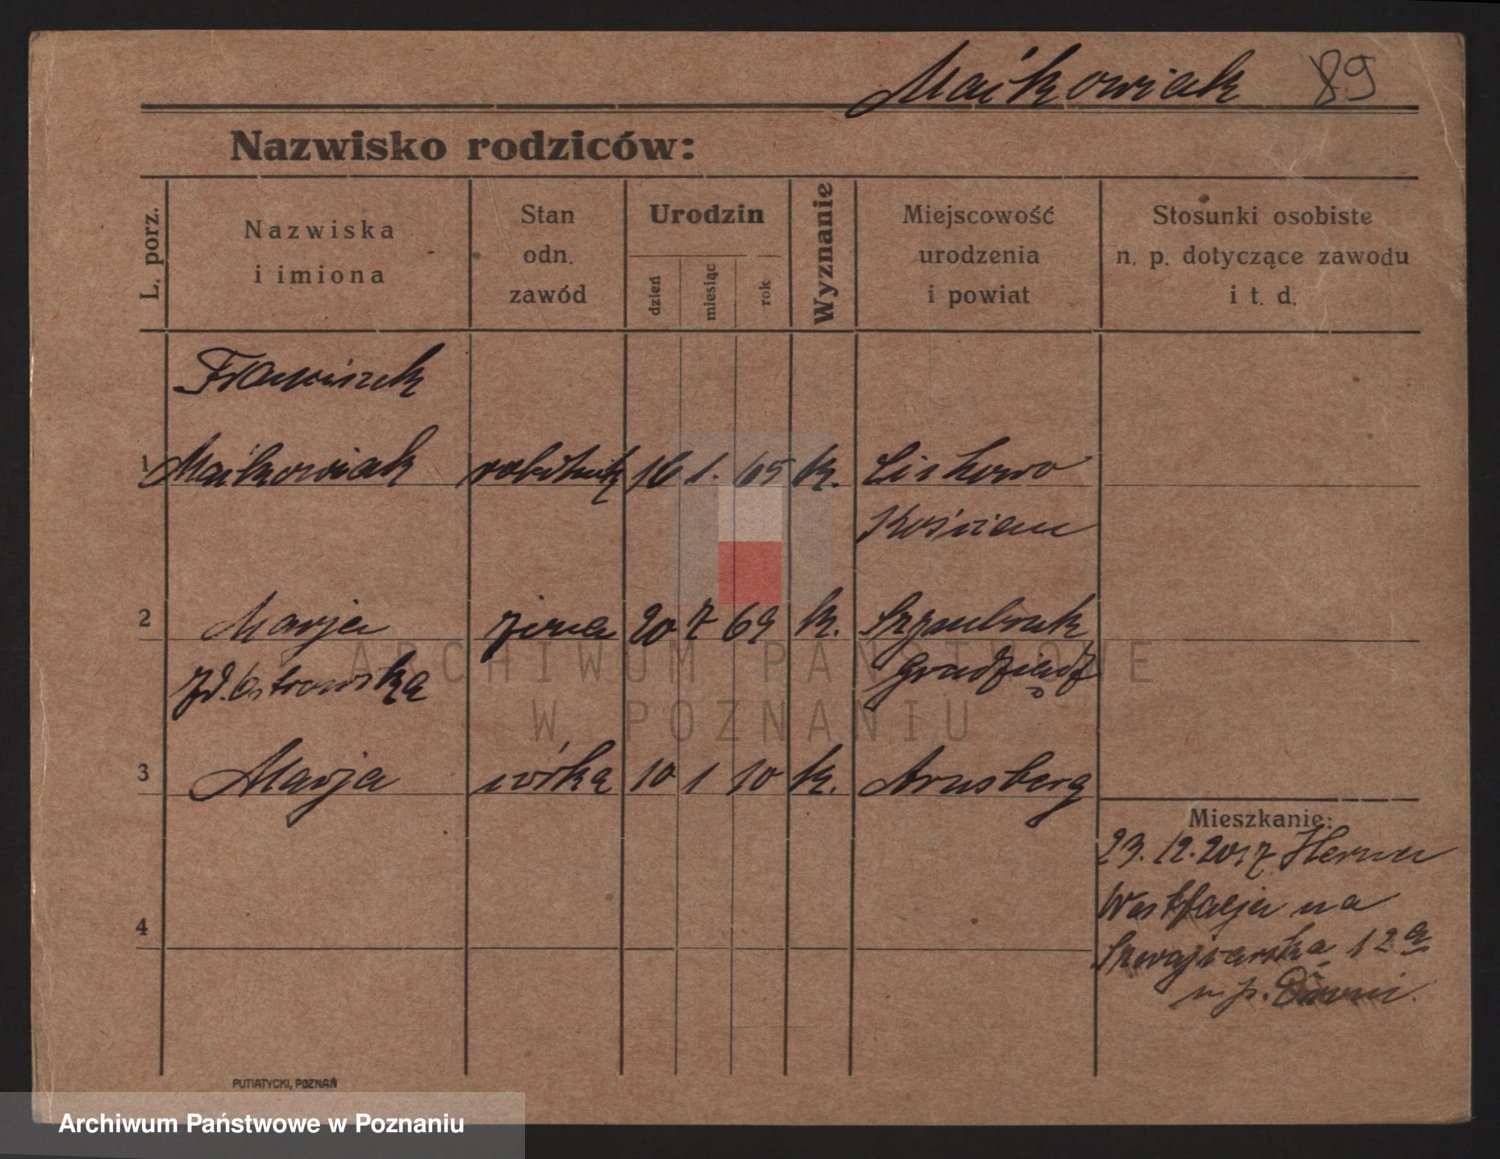 Maćkowiak 89
Nazwisko rodziców:
L. porz.
Nazwiska
i imiona
Stan
odn.
zawód
Urodzin
dzień
miesiąc
rok
Wyznanie
Miejscowość
urodzenia
i powiat
Stosunki osobiste
n. p. dotyczące zawodu
i t. d.
Franciszek
1 Maćkowiak robotnik 16 1. 65 k.
Kościan
2 Marja żona 20 7 69 k. Szembruk
zd. Ostrowska Grudziądz
3 Marja córka 10 1 10 k. Arnsberg
Mieszkanie:
23. 12. 20 z Herne
Westfalja na
Szwajcarska 12a
4
PUTIATYCKI, POZNAŃ
ARCHIWUM PAŃSTWOWE
W POZNANIU
Archiwum Państwowe w Poznaniu